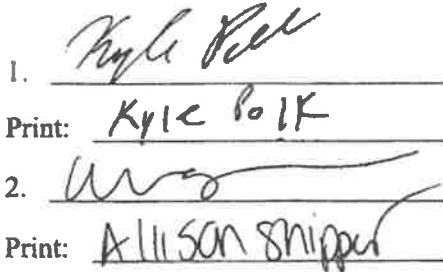 1. Kyle Polk
Print: Kyle Polk
2.
Print: Allison Shipper